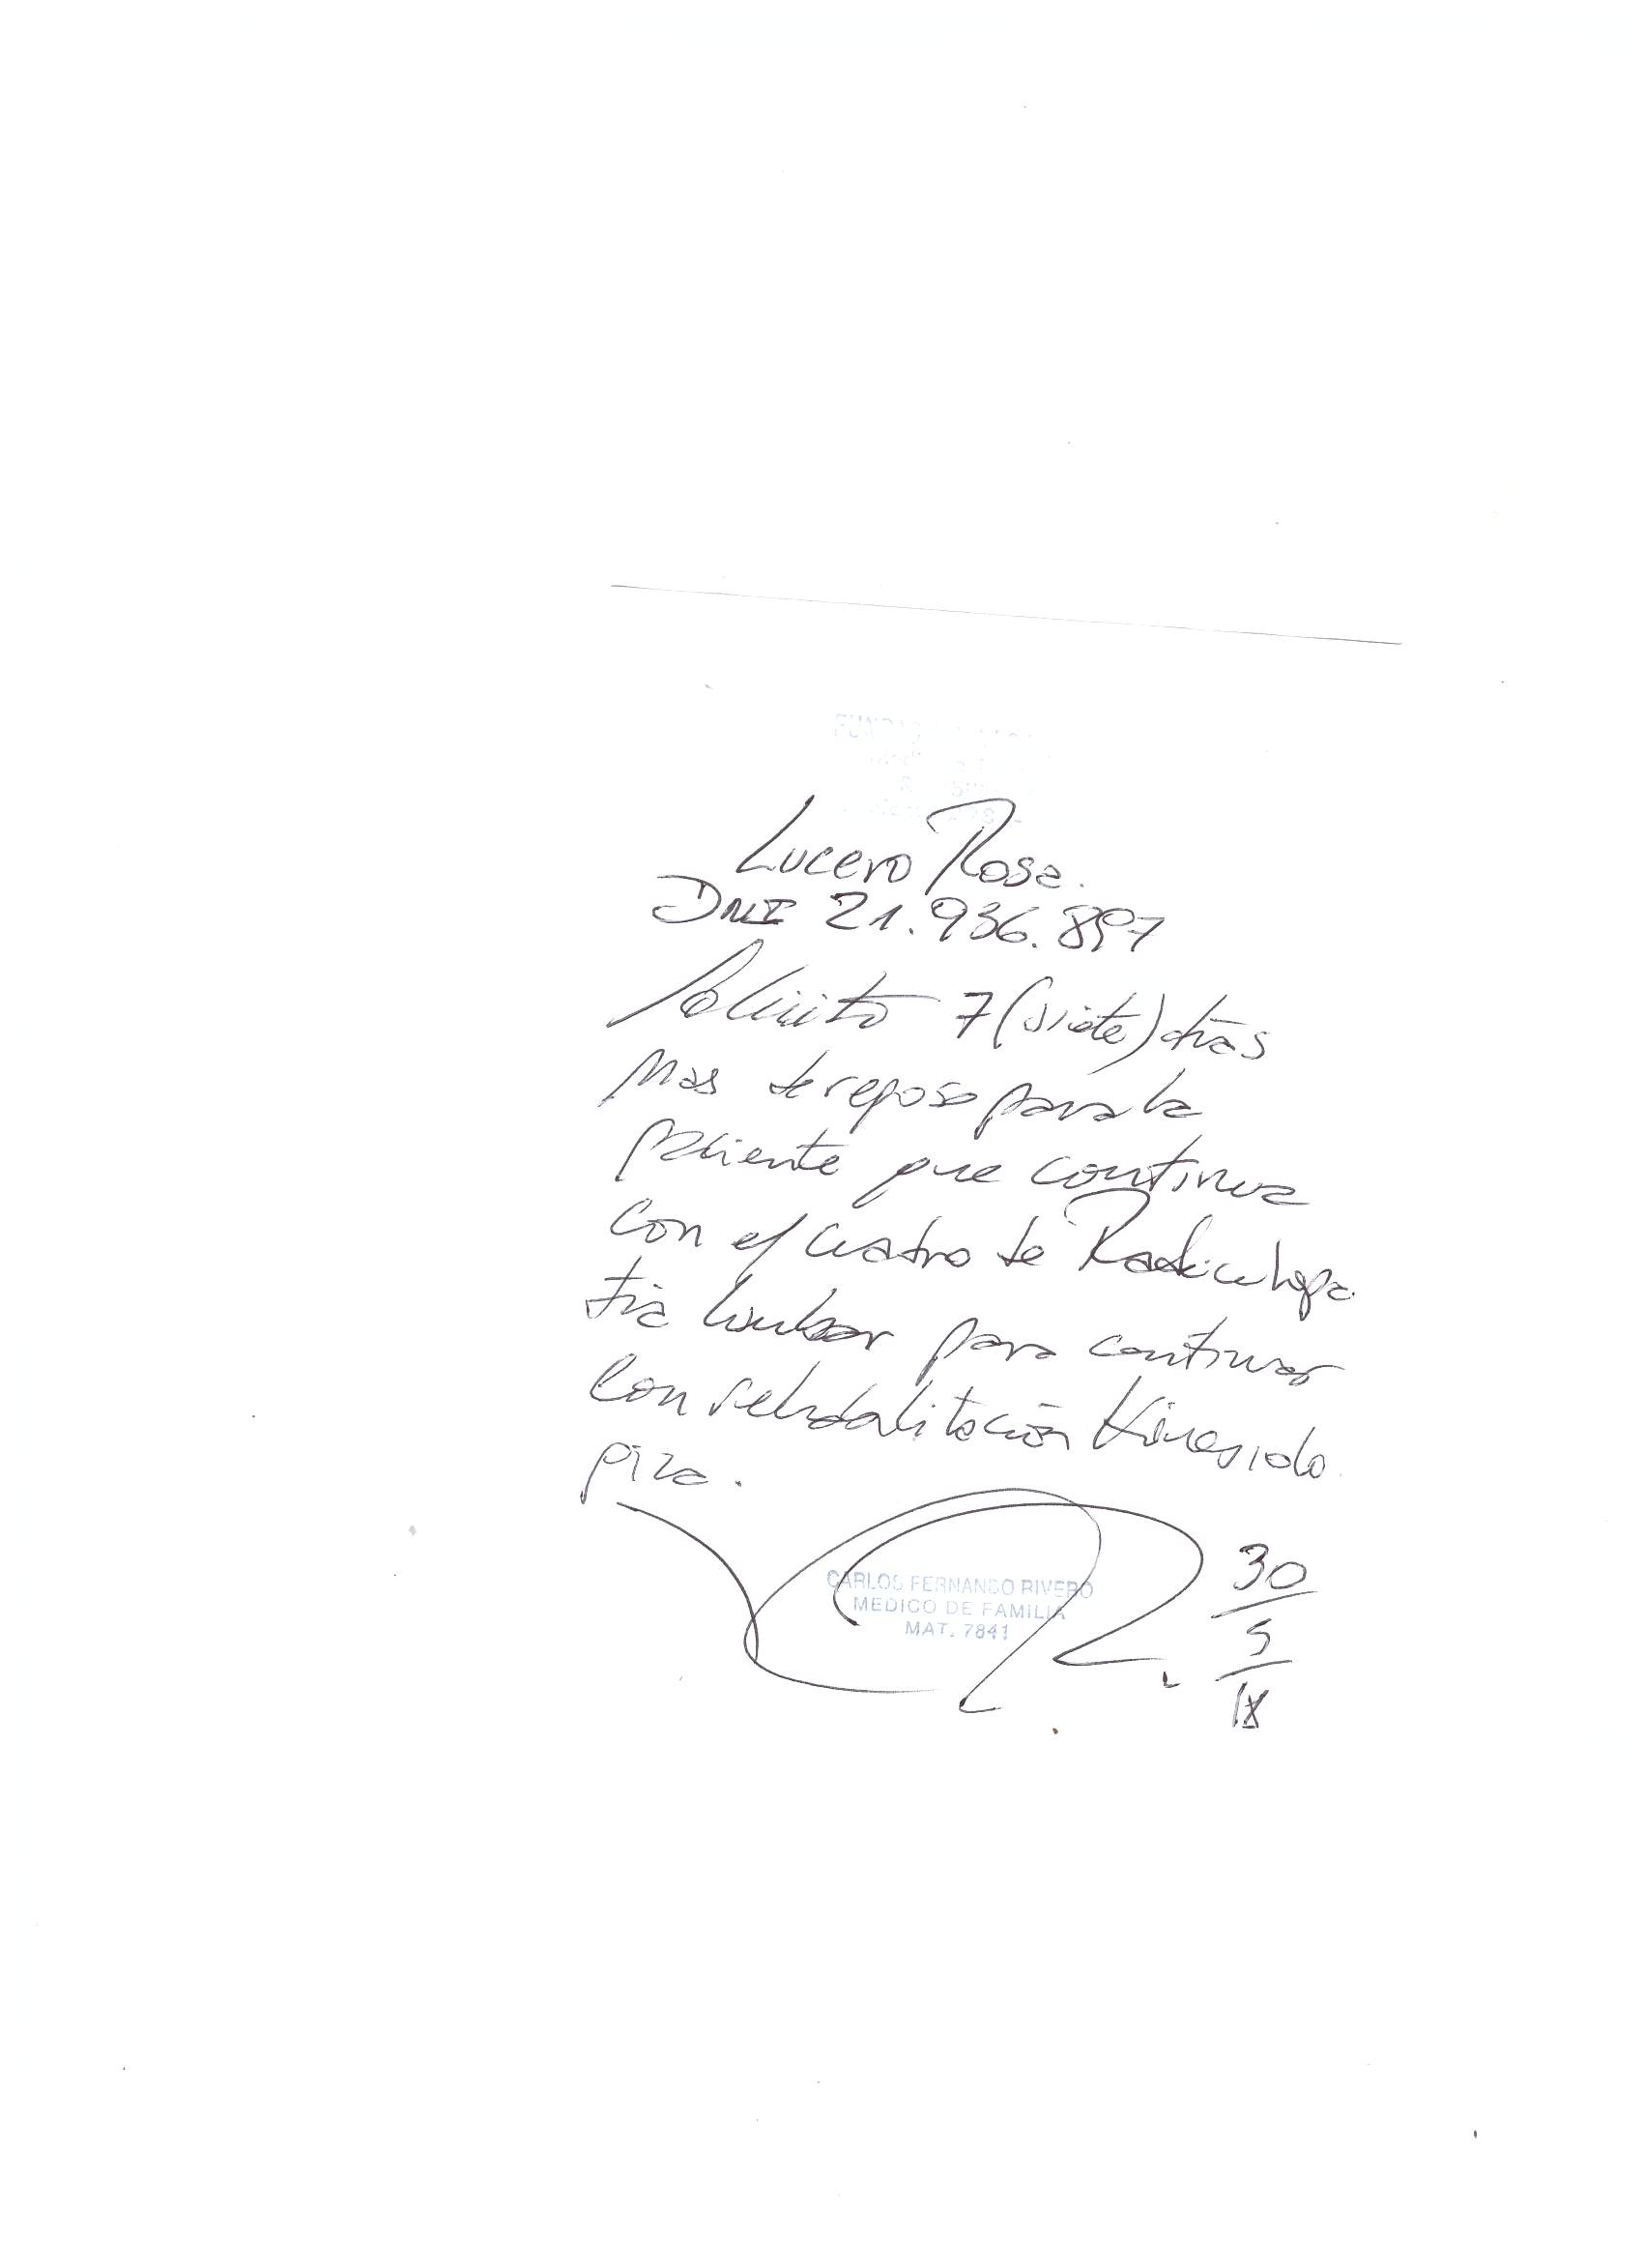 Lucero Rosa.
DNI 21.936.897
Solicito 7 (siete) días
mas de reposo para la
paciente que continua
con el cuadro de Radiculopa
tia lumbar para continuar
con rehabilitación Kinesiolo
gica.
CARLOS FERNANDO RIVERO
MEDICO DE FAMILIA
MAT. 7841
30
5
18